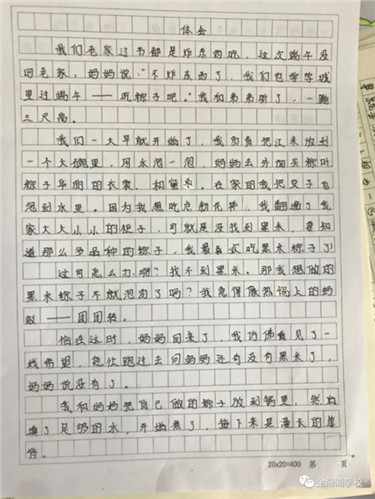 体会
我们毛家过节都是炸东西吃，这次端午没
回毛家，妈妈说："不炸东西了，我们也学学城
里过端午——吃粽子吧。"我和弟弟听了，一蹦
三尺高。
我们一大早就开始了，我负责把江米放到
一个大碗里，用水泡一泡，妈妈去外面买粽叶
粽子华丽的衣裳，和蜜枣。在家的我把豆子也
泡到水里。因为我想吃点新花样，我翻遍了我
家大大小小的柜子，可就是没找到黑米，要知
道那么多品种的粽子，我最喜欢吃黑米粽子了！
这可怎么办啊？找不到黑米，那我想做的
黑米粽子不就泡汤了吗？我急得像热锅上的蚂
蚁——团团转。
恰在这时，妈妈回来了，我仿佛看见了一
线希望，急忙跑过去问妈妈还有没有黑米了，
妈妈说没有了。
我和妈妈把自己做的粽子放到锅里，然后
填了足够的水，开始煮了，接下来是漫长的等
待。
20×20=400 第 页
全海湖学校